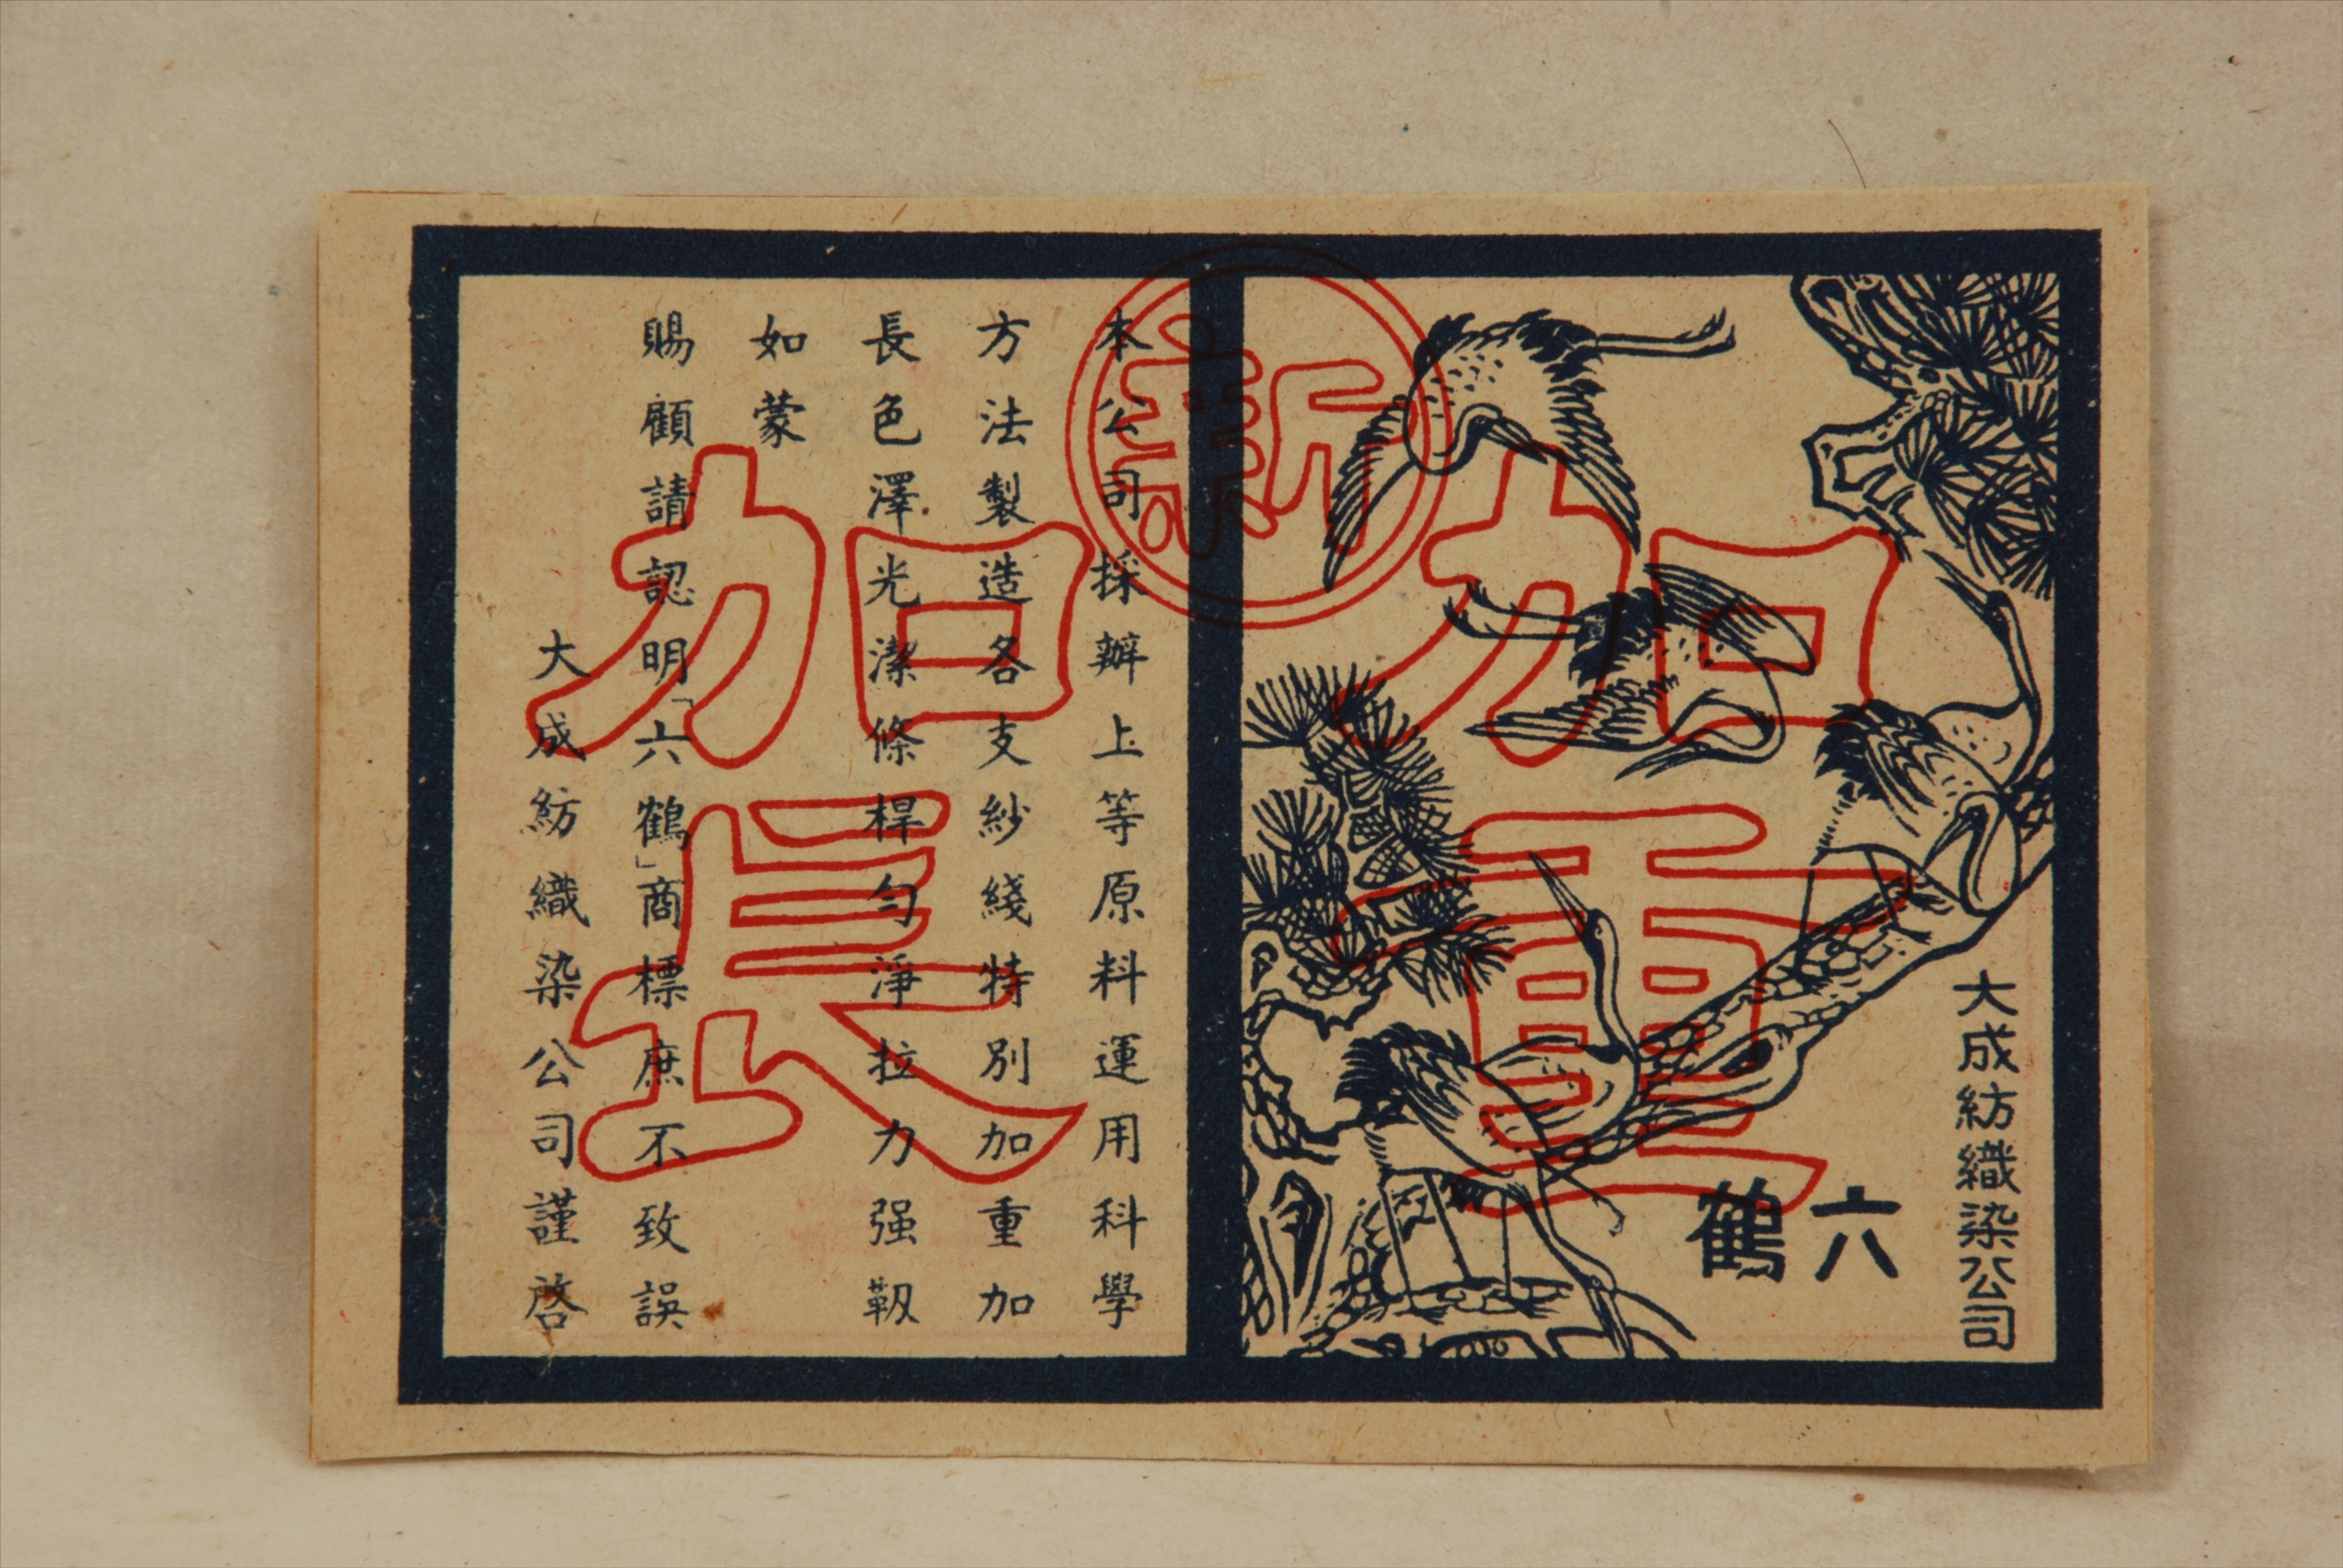 大成紡織染公司
六鶴
新
加重
加長
本公司採辦上等原料運用科學
方法製造各支紗綫特別加重加
長色澤光潔條桿勻淨拉力强韌
如蒙
賜顧請認明「六鶴」商標庶不致誤
大成紡織染公司謹啓